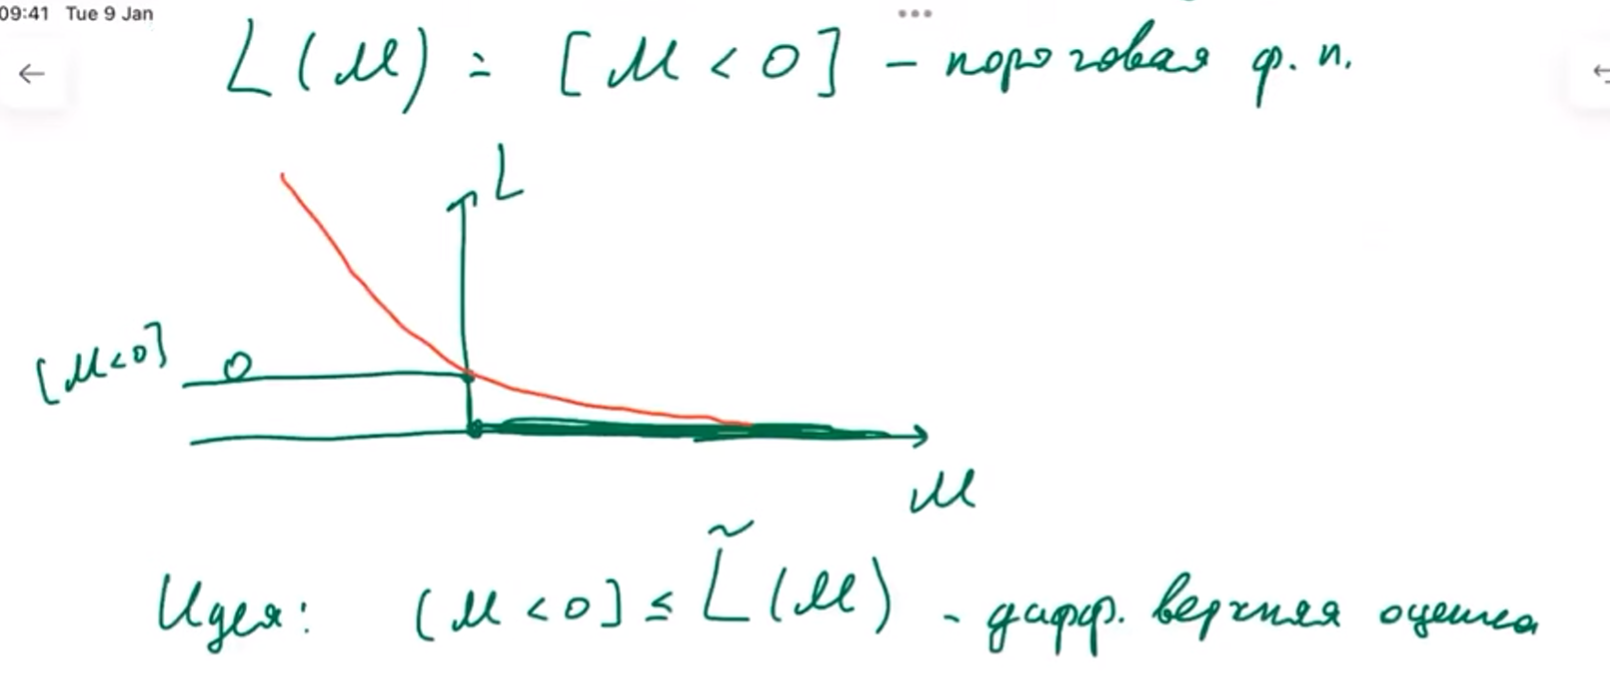 09:41 Tue 9 Jan
L(M) = [M < 0] – пороговая ф. п.
L
[M<0]
0
M
Идея: [M < 0] ≤ L̃(M) - дифф. верхняя оценка